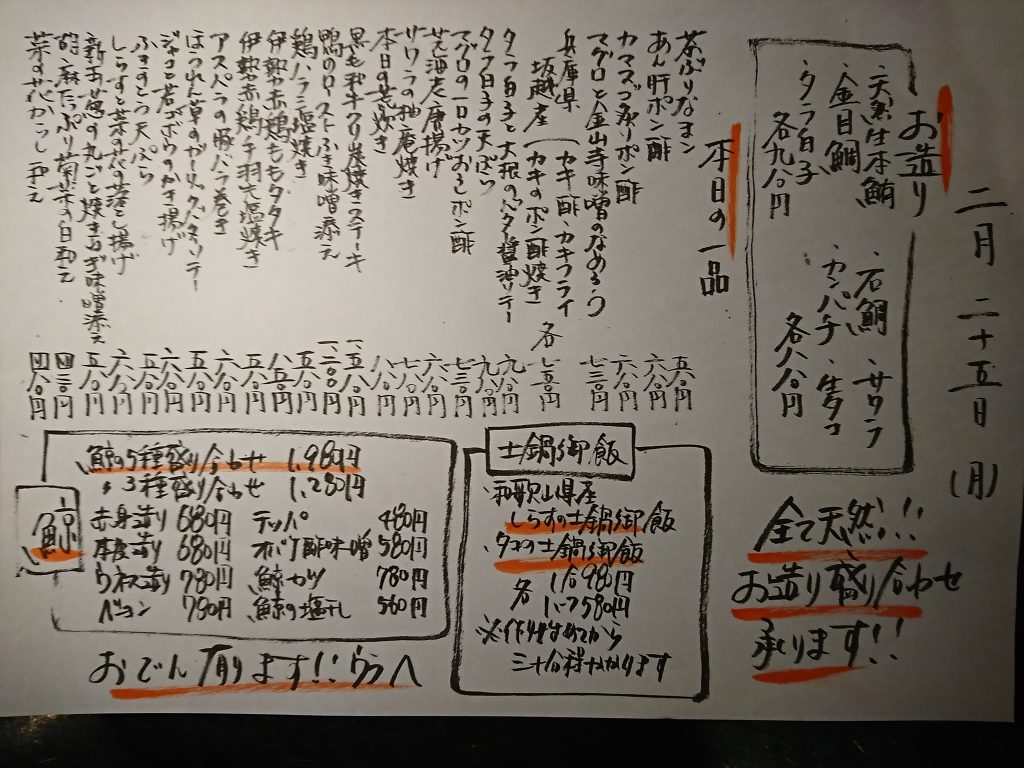 二月二十五日(月)
お造り
・天然生本鮪
・金目鯛
・タラ白子
各九八〇円
・石鯛・サワラ
・カンパチ・生タコ
各八八〇円
全て天然!!
お造り盛り合わせ
承ります!!
本日の一品
茶ぶりなまこ 五八〇円
あん肝ポン酢 六八〇円
カマスゴ炙りポン酢 六八〇円
マグロと金山寺味噌のなめろう 七三〇円
兵庫県坂越産(カキ酢・カキフライ
(カキのポン酢焼き 各七五〇円
タラ白子と大根のバター醤油ソテー 九八〇円
タラ白子の天ぷら 九八〇円
マグロの一口カツおろしポン酢 七三〇円
唐揚げ 六八〇円
サワラの柚庵焼き 七八〇円
本日の煮炊き 八八〇円
黒毛和牛クリ炭焼きステーキ 一五八〇円
鴨のローストふき味噌添え 一二〇〇円
鶏ハラミ塩焼き 六八〇円
伊勢赤鶏ももタタキ 八五〇円
伊勢赤鶏手羽先塩焼き 五八〇円
アスパラの豚バラ巻き 六八〇円
ほうれん草のガーリックバターソテー 五八〇円
ジャコと若ゴボウのかき揚げ 六八〇円
ふきのとう天ぷら 五八〇円
しらすと菜の花の落とし揚げ 六八〇円
新玉葱の丸ごと焼きねぎ味噌添え 五八〇円
胡麻たっぷり菊菜の白和え 四三〇円
菜の花からし和え 四八〇円
土鍋御飯
・和歌山県産
しらすの土鍋御飯
・タコの土鍋御飯
各 1合980円
1.5 1,580円
※作り始めてから
三十分程かかります
鯨
・鯨の5種盛り合わせ 1,980円
〃 3種盛り合わせ 1,280円
赤身造り 680円 テッパ 480円
本皮造り 680円 オバケ酢味噌 580円
ウネス造り 780円 鯨カツ 780円
ベーコン 780円 鯨の塩干し 560円
おでん有ります!!ウラへ